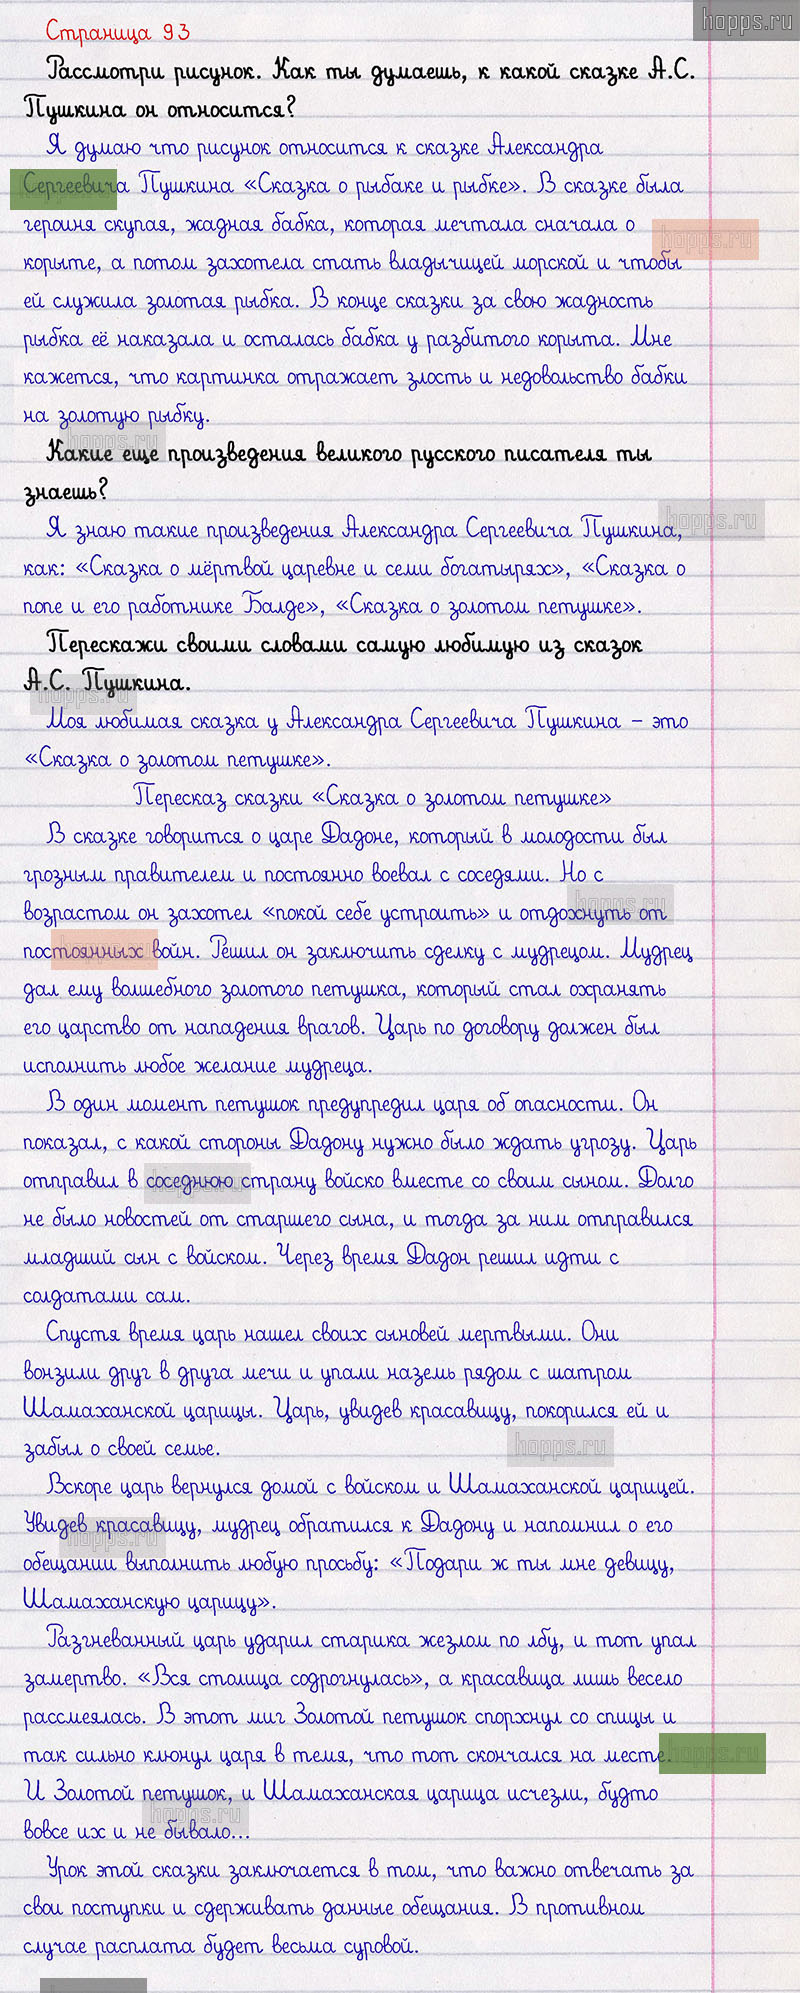 hopps.ru
Страница 93
Рассмотри рисунок. Как ты думаешь, к какой сказке А.С.
Пушкина он относится?
Я думаю что рисунок относится к сказке Александра
Сергеевича Пушкина «Сказка о рыбаке и рыбке». В сказке была
героиня скупая, жадная бабка, которая мечтала сначала о
hopps.ru
корыте, а потом захотела стать владычицей морской и чтобы
ей служила золотая рыбка. В конце сказки за свою жадность
рыбка её наказала и осталась бабка у разбитого корыта. Мне
кажется, что картинка отражает злость и недовольство бабки
на золотую рыбку.
hopps.ru
Какие еще произведения великого русского писателя ты
знаешь?
hopps.ru
Я знаю такие произведения Александра Сергеевича Пушкина,
как: «Сказка о мёртвой царевне и семи богатырях», «Сказка о
попе и его работнике Балде», «Сказка о золотом петушке».
Перескажи своими словами самую любимую из сказок
А.С. Пушкина.
hopps.ru
Моя любимая сказка у Александра Сергеевича Пушкина – это
«Сказка о золотом петушке».
Пересказ сказки «Сказка о золотом петушке»
В сказке говорится о царе Дадоне, который в молодости был
грозным правителем и постоянно воевал с соседями. Но с
hopps.ru
возрастом он захотел «покой себе устроить» и отдохнуть от
постоянных войн. Решил он заключить сделку с мудрецом. Мудрец
дал ему волшебного золотого петушка, который стал охранять
его царство от нападения врагов. Царь по договору должен был
исполнить любое желание мудреца.
В один момент петушок предупредил царя об опасности. Он
показал, с какой стороны Дадону нужно было ждать угрозу. Царь
отправил в соседнюю страну войско вместе со своим сыном. Долго
не было новостей от старшего сына, и тогда за ним отправился
младший сын с войском. Через время Дадон решил идти с
солдатами сам.
Спустя время царь нашел своих сыновей мертвыми. Они
вонзили друг в друга мечи и упали наземь рядом с шатром
Шамаханской царицы. Царь, увидев красавицу, покорился ей и
забыл о своей семье.
hopps.ru
Вскоре царь вернулся домой с войском и Шамаханской царицей.
Увидев красавицу, мудрец обратился к Дадону и напомнил о его
hopps.ru
обещании выполнить любую просьбу: «Подари ж ты мне девицу,
Шамаханскую царицу».
Разгневанный царь ударил старика жезлом по лбу, и тот упал
замертво. «Вся столица содрогнулась», а красавица лишь весело
рассмеялась. В этот миг Золотой петушок спорхнул со спицы и
так сильно клюнул царя в темя, что тот скончался на месте.
hopps.ru
И Золотой петушок, и Шамаханская царица исчезли, будто
hopps.ru
вовсе их и не бывало...
Урок этой сказки заключается в том, что важно отвечать за
свои поступки и сдерживать данные обещания. В противном
случае расплата будет весьма суровой.